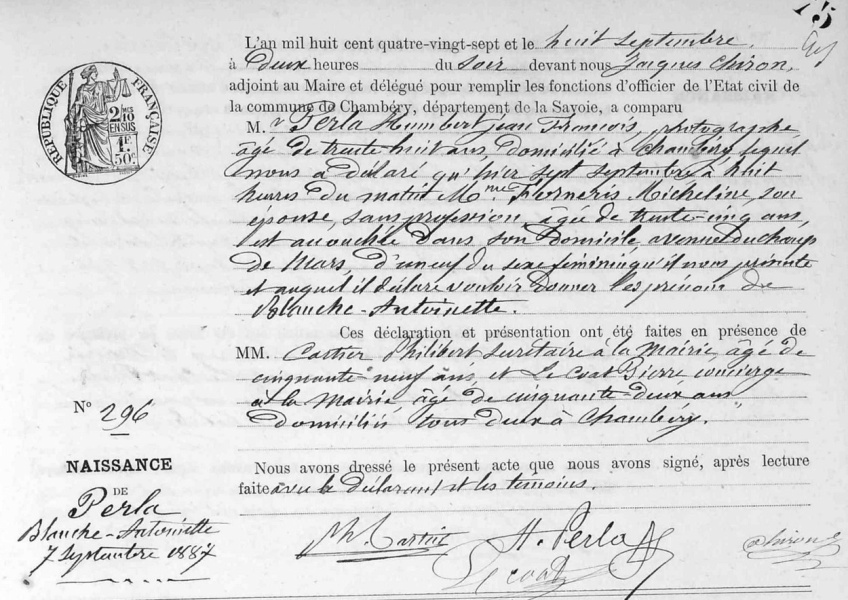 75
L'an mil huit cent quatre-vingt-sept et le huit septembre,
à deux heures du soir devant nous Jacques Chiron,
adjoint au Maire et délégué pour remplir les fonctions d'officier de l'Etat civil de
la commune de Chambéry, département de la Savoie, a comparu
M. r Perla Humbert Jean François, photographe,
âgé de trente-huit ans, domicilié à Chambéry, lequel
nous a déclaré qu'hier sept septembre à huit
heures du matin Mme Fiorneris Micheline, son
épouse, sans profession, âgée de trente-cinq ans,
est accouchée dans son domicile, avenue du champ
de Mars, d'un enf du sexe féminin qu'il nous présente
et auquel il déclare vouloir donner les prénoms de
Blanche-Antoinette.
Ces déclaration et présentation ont été faites en présence de
MM. Cartier Philibert secrétaire à la Mairie, âgé de
cinquante-neuf ans, et Le Coat Pierre concierge
à la Mairie âgé de cinquante-deux ans
domiciliés tous deux à Chambéry.
Nous avons dressé le présent acte que nous avons signé, après lecture
faite avec le déclarant et les témoins.
Ph. Cartier
H. Perla
Chiron
Le Coat
RÉPUBLIQUE FRANÇAISE
2/10 EN SUS
1F 50c
N° 296
NAISSANCE
DE
Perla
Blanche-Antoinette
7 Septembre 1887